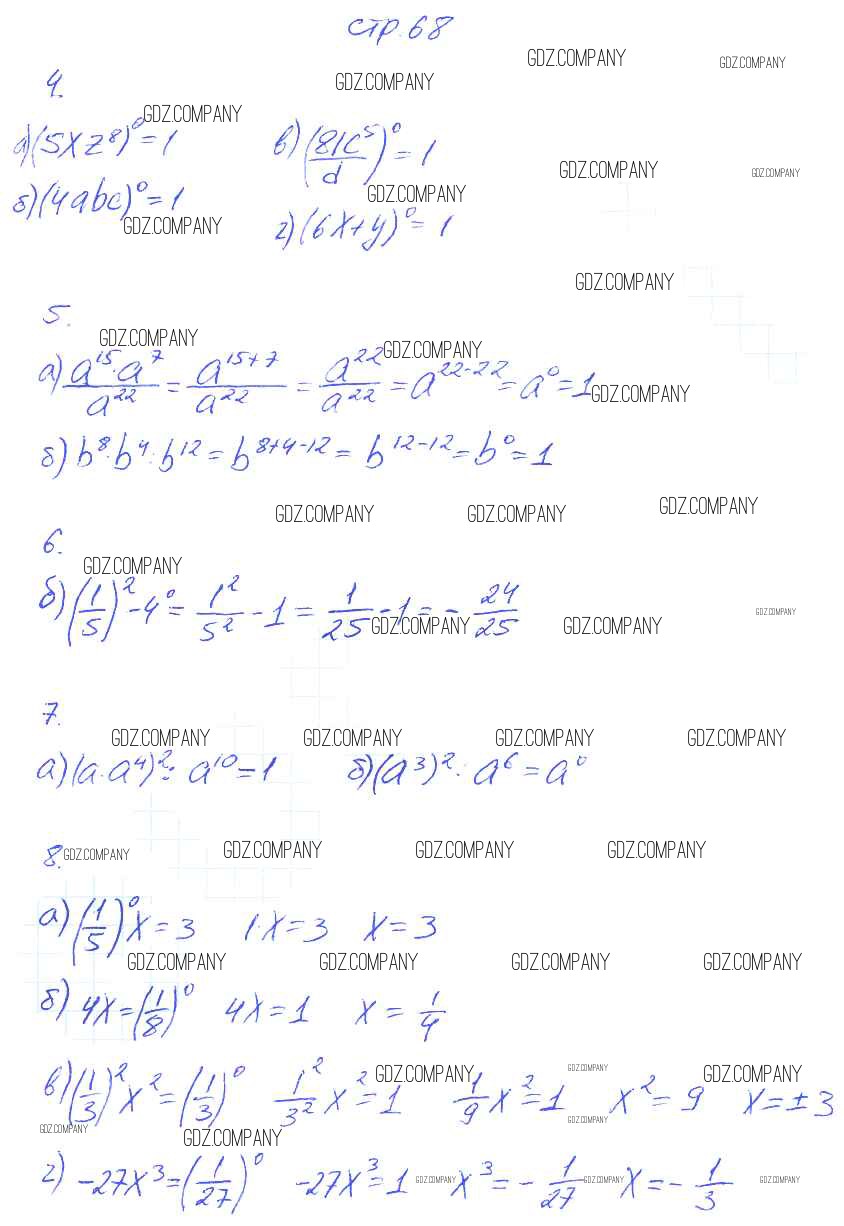 стр. 68
GDZ.COMPANY GDZ.COMPANY
4. GDZ.COMPANY
GDZ.COMPANY
а) (5xz⁸)⁰ = 1 в) (81c⁵/d)⁰ = 1
GDZ.COMPANY GDZ.COMPANY
б) (4abc)⁰ = 1 GDZ.COMPANY
GDZ.COMPANY г) (6x+y)⁰ = 1
GDZ.COMPANY
5.
GDZ.COMPANY GDZ.COMPANY
а) a¹⁵·a⁷/a²² = a¹⁵⁺⁷/a²² = a²²/a²² = a²²⁻²² = a⁰ = 1 GDZ.COMPANY
б) b⁸·b⁴:b¹² = b⁸⁺⁴⁻¹² = b¹²⁻¹² = b⁰ = 1
GDZ.COMPANY GDZ.COMPANY GDZ.COMPANY
6.
GDZ.COMPANY
б) (1/5)² - 4⁰ = 1²/5² - 1 = 1/25 - 1 = - 24/25
GDZ.COMPANY GDZ.COMPANY GDZ.COMPANY
7.
GDZ.COMPANY GDZ.COMPANY GDZ.COMPANY GDZ.COMPANY
а) (a·a⁴)² : a¹⁰ = 1 б) (a³)² : a⁶ = a⁰
8. GDZ.COMPANY GDZ.COMPANY GDZ.COMPANY GDZ.COMPANY
а) (1/5)⁰ x = 3 1·x = 3 x = 3
GDZ.COMPANY GDZ.COMPANY GDZ.COMPANY GDZ.COMPANY
б) 4x = (1/8)⁰ 4x = 1 x = 1/4
GDZ.COMPANY GDZ.COMPANY GDZ.COMPANY
в) (1/3)² x² = (1/3)⁰ 1²/3² x² = 1 1/9 x² = 1 x² = 9 x = ±3
GDZ.COMPANY GDZ.COMPANY GDZ.COMPANY
г) -27x³ = (1/27)⁰ -27x³ = 1 GDZ.COMPANY x³ = - 1/27 GDZ.COMPANY x = - 1/3 GDZ.COMPANY